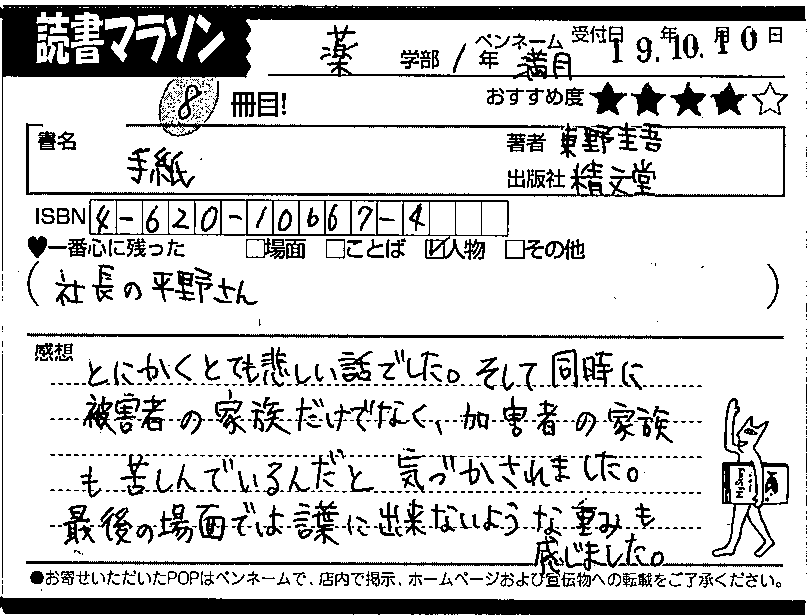 読書マラソン
薬 学部 1 年 ペンネーム 満月 受付日 19年10月10日
8 冊目! おすすめ度 ★★★★☆
書名 手紙 著者 東野圭吾
出版社 精文堂
ISBN 4-620-10667-4
♥一番心に残った □場面 □ことば ☑人物 □その他
(社長の平野さん)
感想 とにかくとても悲しい話でした。そして同時に
被害者の家族だけでなく、加害者の家族
も苦しんでいるんだと気づかされました。
最後の場面では言葉に出来ないような重みも
感じました。
●お寄せいただいたPOPはペンネームで、店内で掲示、ホームページおよび宣伝物への転載をご了承ください。